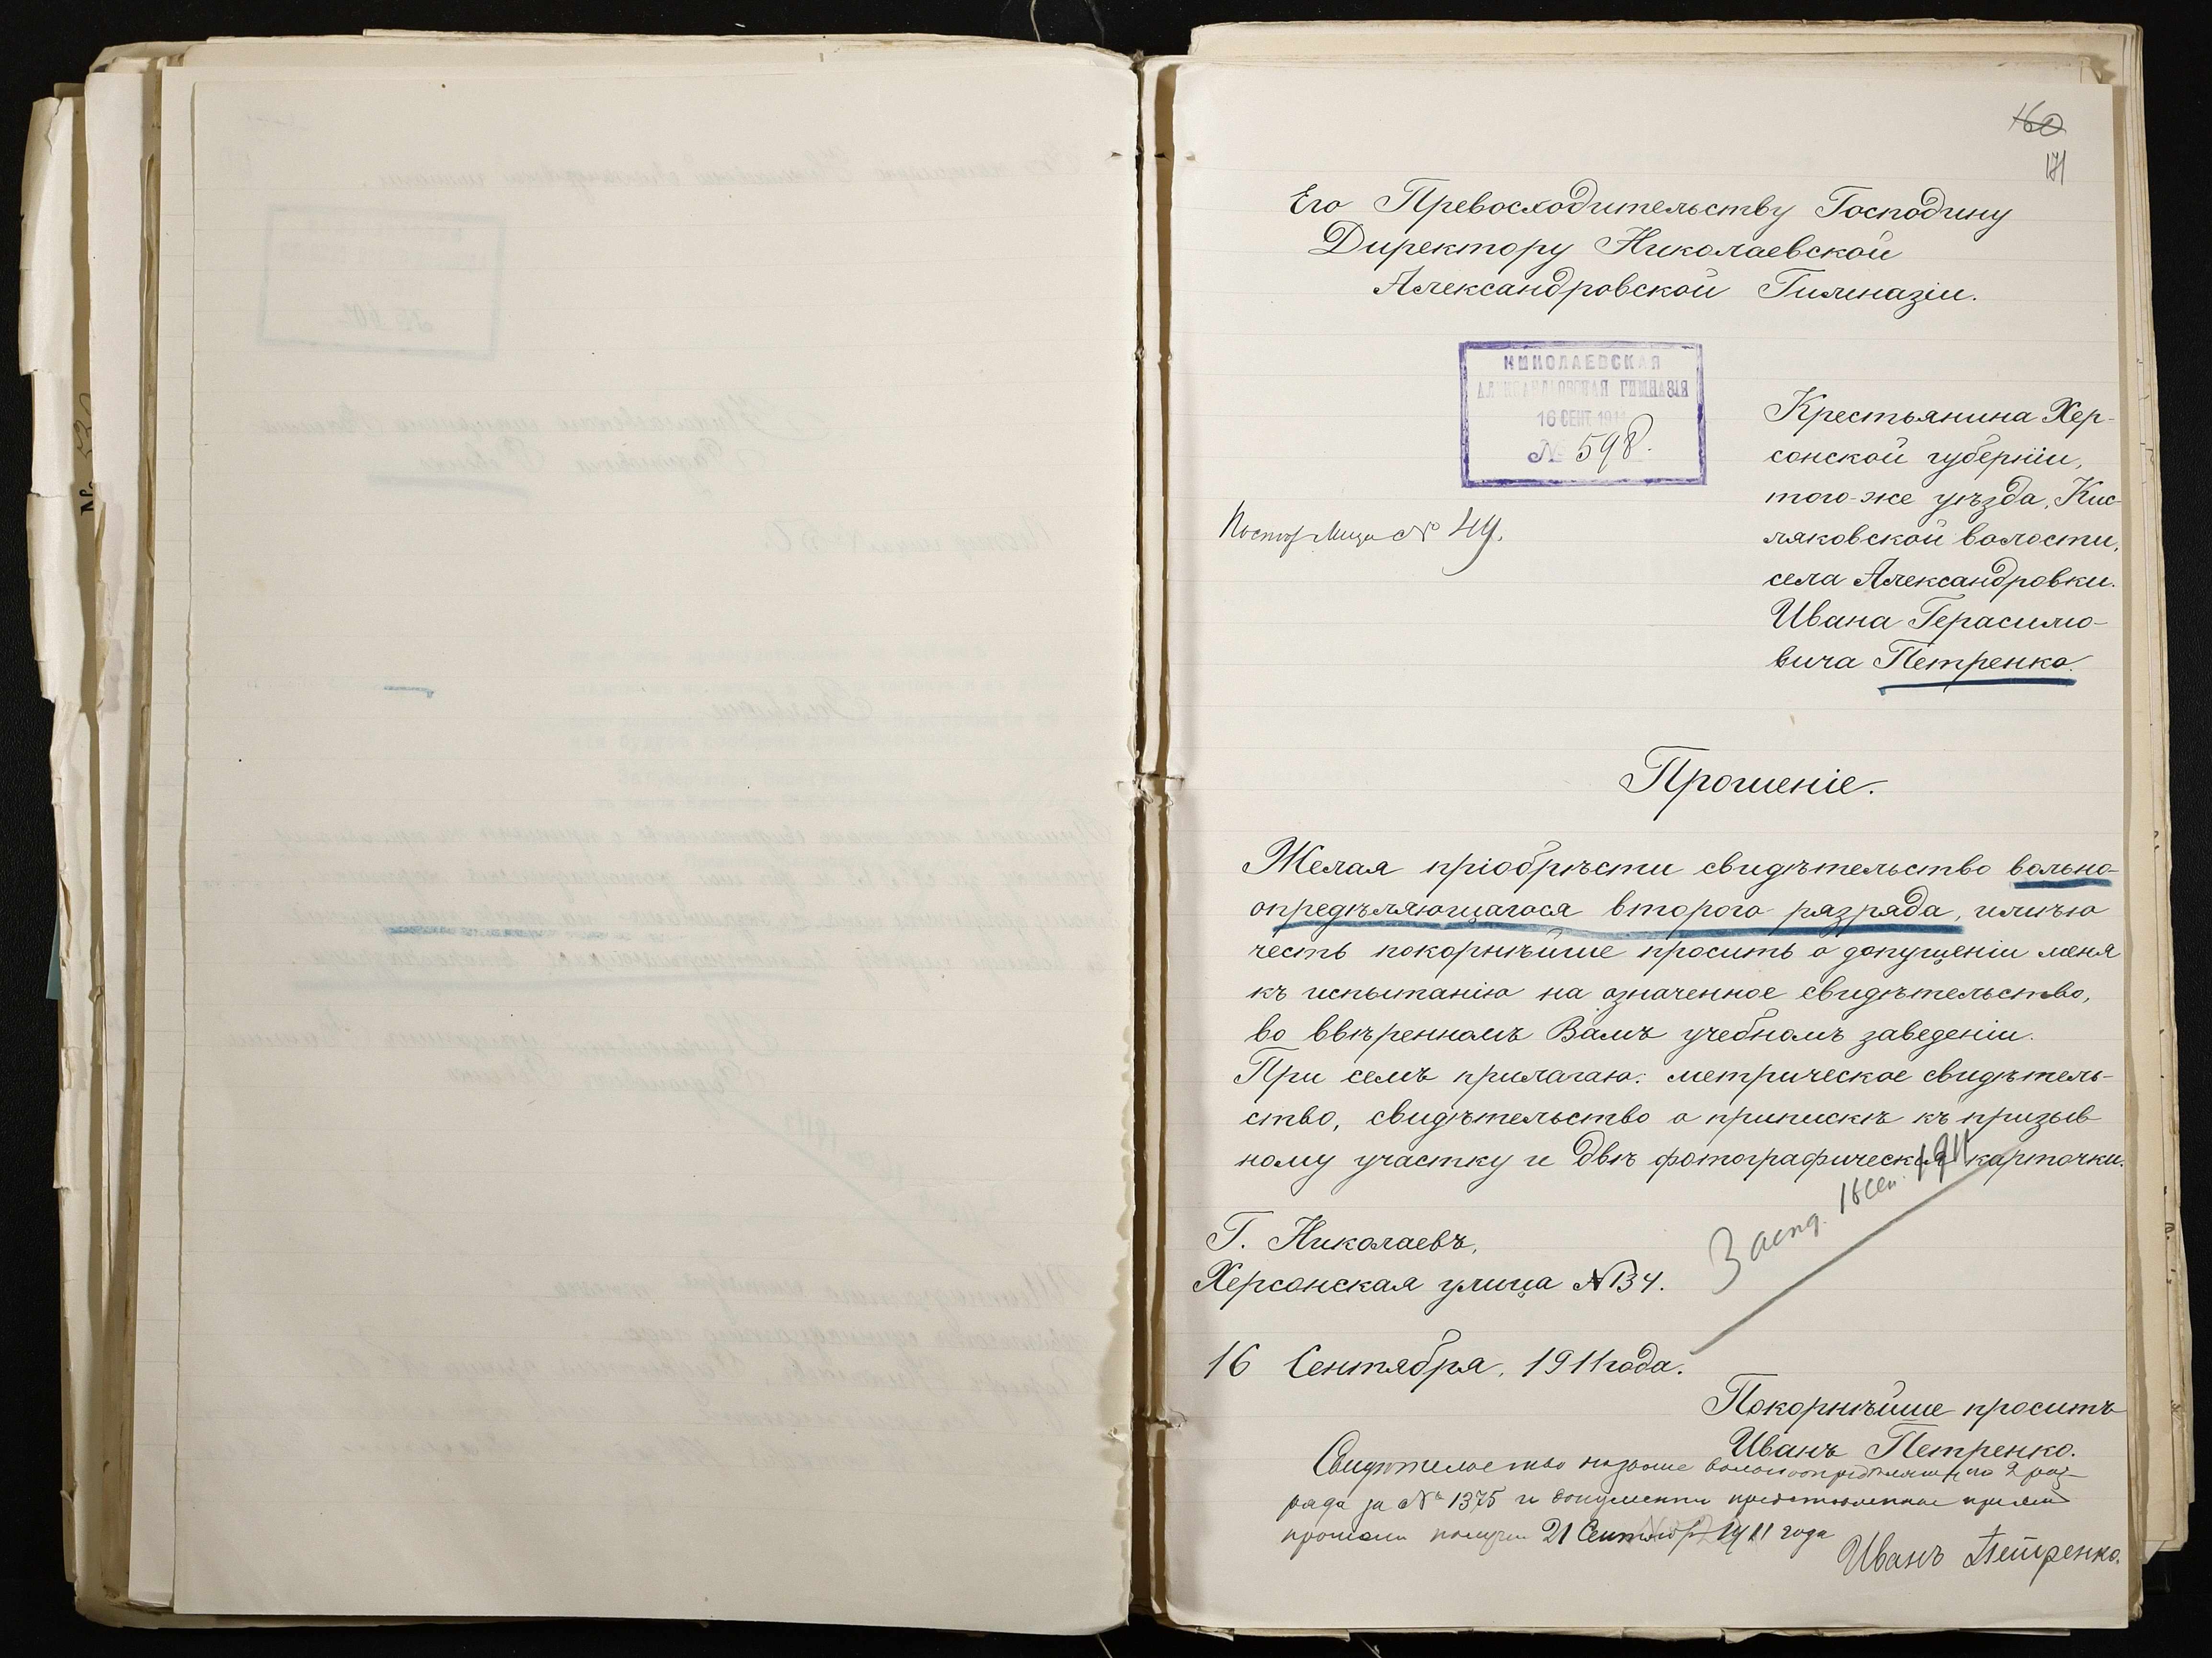 160
171
Его Превосходительству Господину
Директору Николаевской
Александровской Гимназіи.
НИКОЛАЕВСКАЯ
АЛЕКСАНДРОВСКАЯ ГИМНАЗІЯ
16 СЕНТ. 1911
№ 598.
№ 49.
Крестьянина Хер-
сонской губерніи,
того-же уѣзда, Кис-
ляковской волости,
села Александровки.
Ивана Герасимо-
вича Петренко.
Прошеніе.
Желая пріобрѣсти свидѣтельство вольно-
опредѣляющагося второго разряда, имѣю
честь покорнѣйше просить о допущеніи меня
къ испытанію на означенное свидѣтельство,
во ввѣренномъ Вамъ учебномъ заведеніи.
При семъ прилагаю: метрическое свидѣтель-
ство, свидѣтельство о припискѣ къ призыв
ному участку и двѣ фотографическія карточки.
16 сен. 1911
Г. Николаевъ,
Херсонская улица №134.
16 Сентября, 1911 года.
Покорнѣйше проситъ
Иванъ Петренко.
Свидѣтельство на званіе вольноопредѣляющагося 2 раз-
ряда за № 1375 и документы представленные при
прошеніи получилъ 21 Сентября 1911 года
Иванъ Петренко.